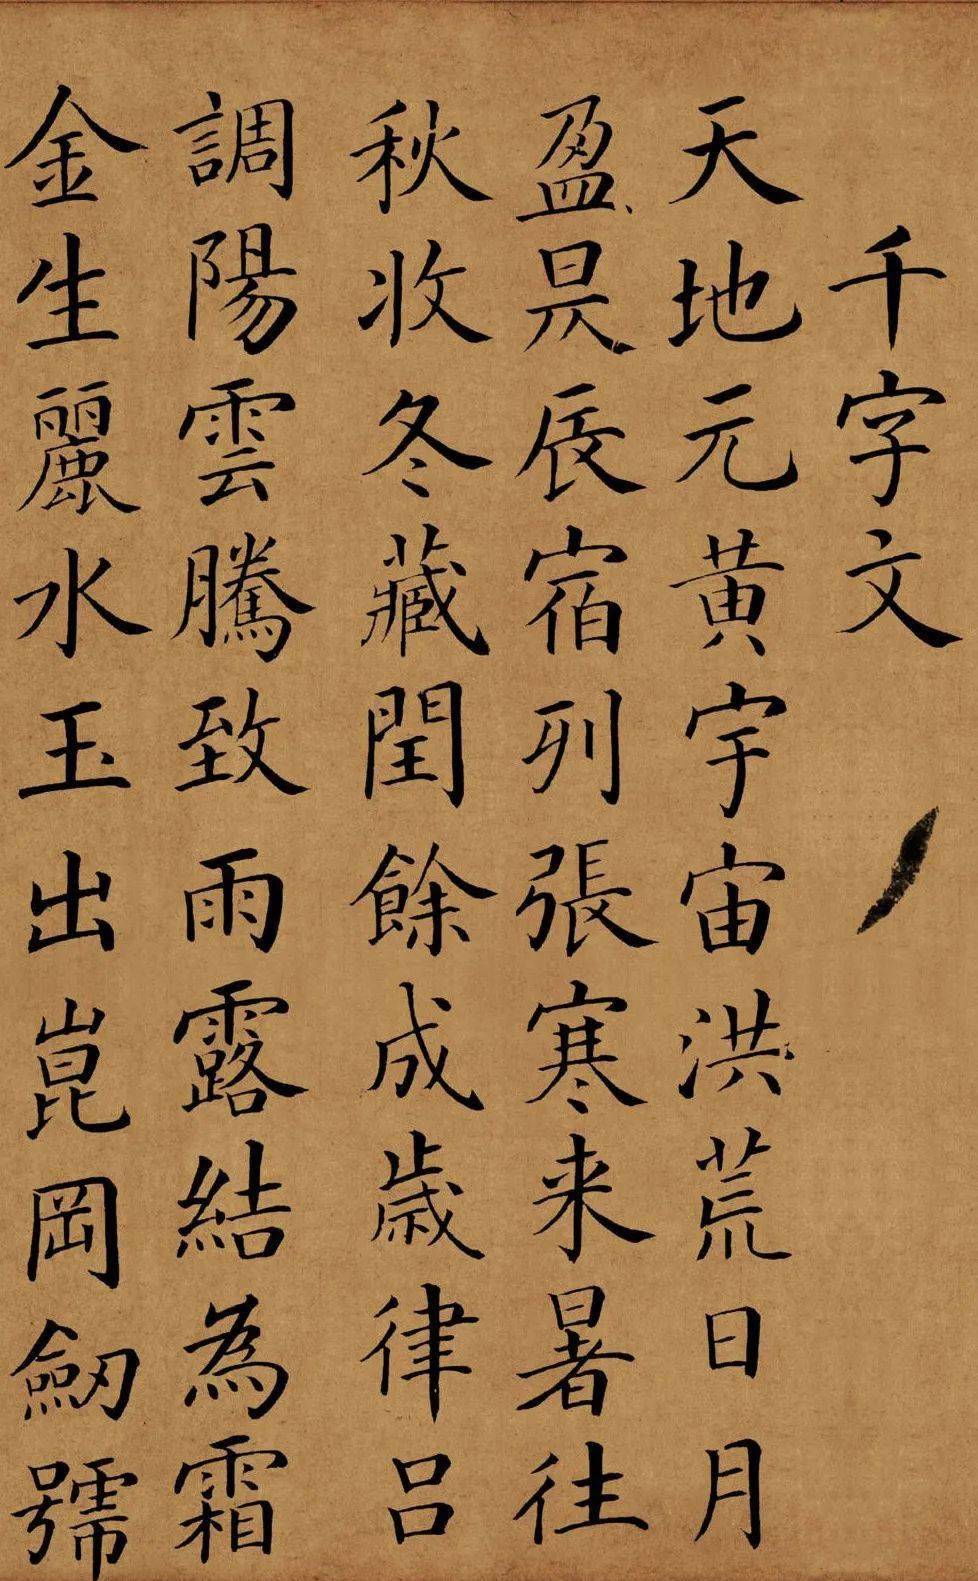 千字文
天地元黄宇宙洪荒日月
盈昃辰宿列張寒来暑往
秋收冬藏閏餘成歲律吕
調陽雲騰致雨露結為霜
金生麗水玉出崑岡劒號